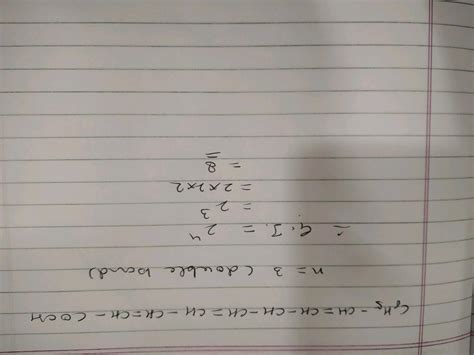 C6H5 - CH = CH - CH = CH - CH = CH - COOH
n = 3 (double bond)
∴ G.I. = 2^n
= 2^3
= 2×2×2
= 8